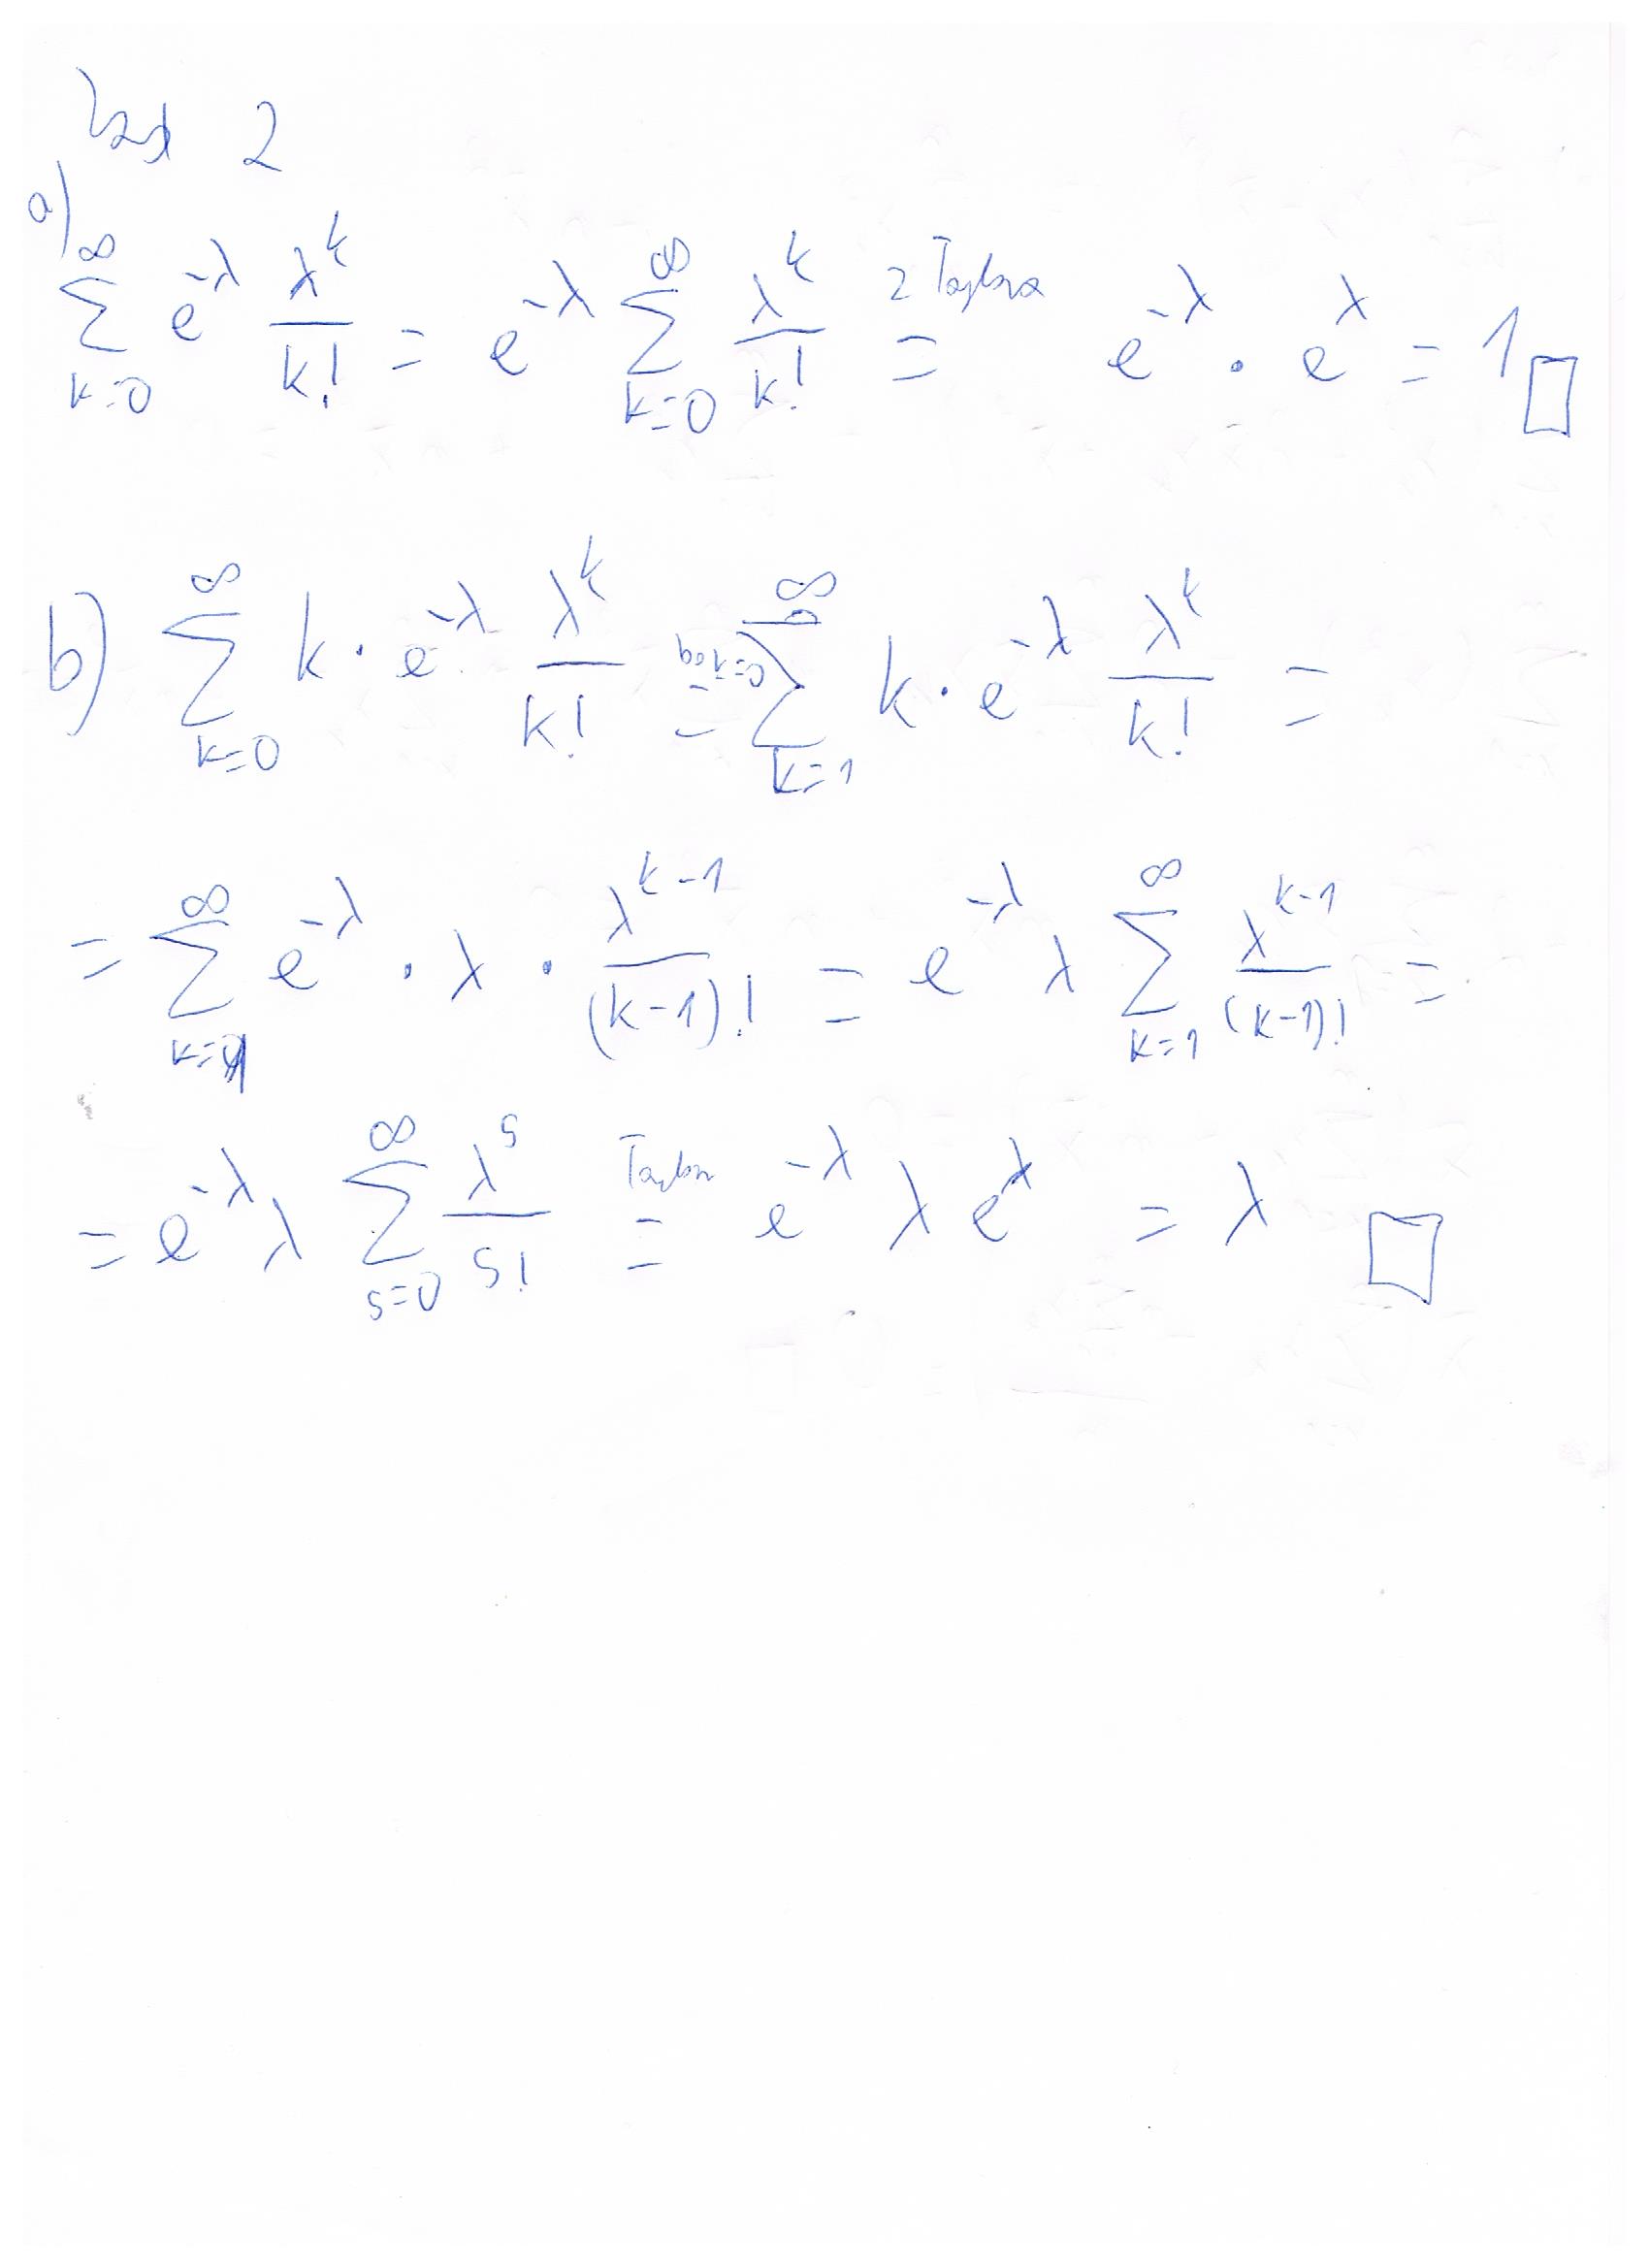 Zad 2
a)
∑_{k=0}^{∞} e^{-λ} \frac{λ^k}{k!} = e^{-λ} ∑_{k=0}^{∞} \frac{λ^k}{k!} \overset{z Taylora}{=} e^{-λ} · e^{λ} = 1 □
b) ∑_{k=0}^{∞} k · e^{-λ} \frac{λ^k}{k!} = ∑_{k=1}^{∞} k · e^{-λ} \frac{λ^k}{k!} =
= ∑_{k=1}^{∞} e^{-λ} · λ · \frac{λ^{k-1}}{(k-1)!} = e^{-λ} λ ∑_{k=1}^{∞} \frac{λ^{k-1}}{(k-1)!} =
= e^{-λ} λ ∑_{s=0}^{∞} \frac{λ^s}{s!} \overset{Taylor}{=} e^{-λ} λ e^{λ} = λ □